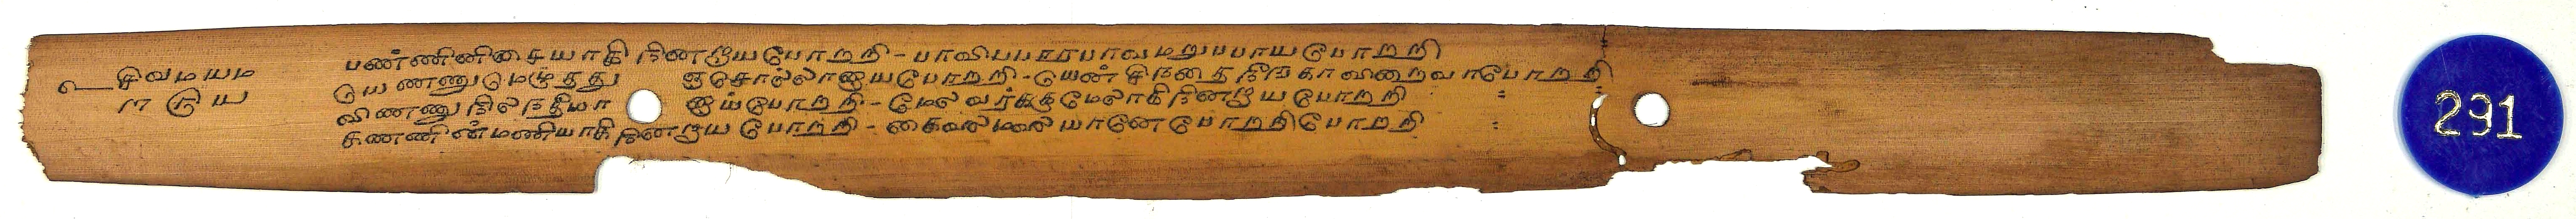 உ சிவமயம
பண்ணினிசையாகி நினறயபோறறி - பாவிபபாரபாவமறுபபாயபோறறி
எண்ணுமெழுதது ஞசொல்லானாயபோறறி - யென் சிநதைநீஙகாவிறைவாபோறறி
விணணுநிலநதீயா னாய்போறறி - மேலவர்ககுமேலாகிநினறயபோறறி
கணணின்மணியாகிநினறய போறறி - கைலைமலையானேபோறறிபோறறி
291